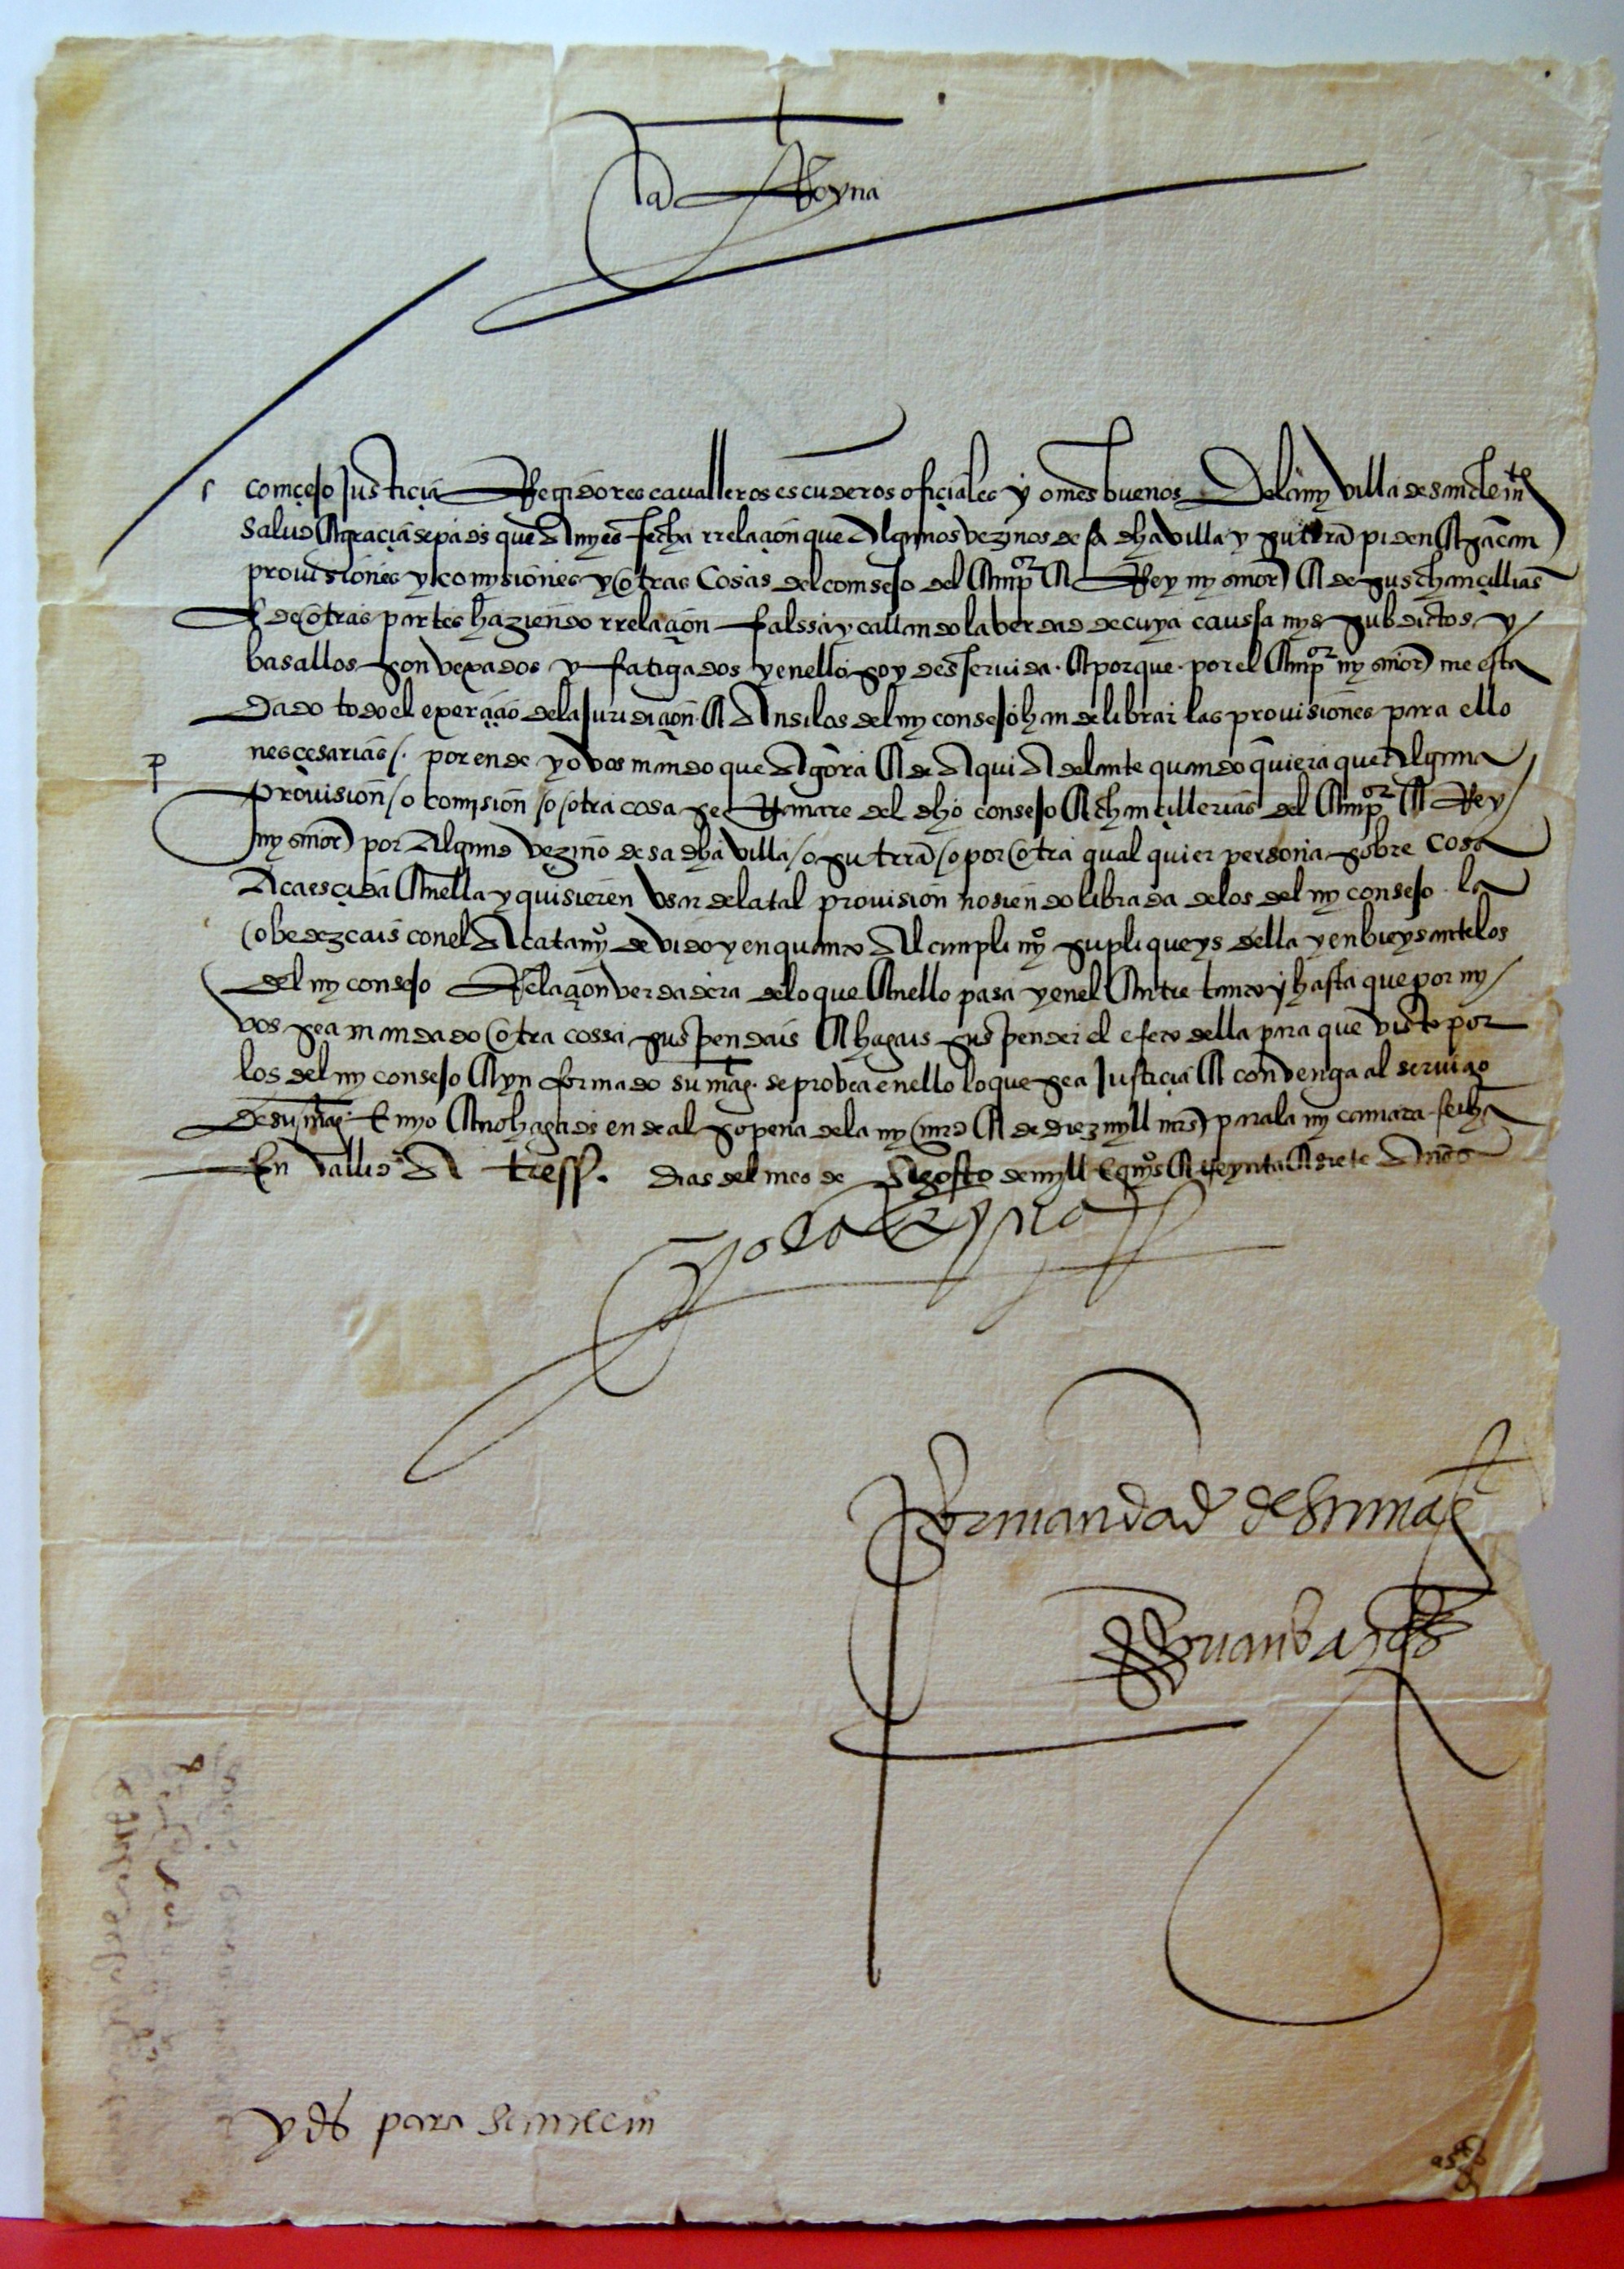 la Reyna
comçejo justiçia Regidores cavalleros escuderos ofiçiales y omes buenos De la my villa de sanclemte
salud e graçia sepades que a my es fecha rrelaçion que algunos vezinos desa dha villa y su trra piden e sacan
provisiones y comysiones y otras cosas del comsejo del empor e Rey my señor e de sus chançillias
e de otras partes haziendo rrelaçion falssa y callando la verdad de cuya caussa mys subditos y
basallos son vexados y fatigados y en ello soy desservida. e porque por el empor my señor me esta
dado todo el exerçiçio de la juridiçion e ansi los del my consejo han de librar las provisiones para ello
nesçesarias /. por ende yo vos mando que agora e de aqui adelante quando quiera que alguna
provision / o comision / o otra cosa se ganare del dho consejo e chançillerias del empor e Rey
my señor por algund vezino desa dha villa / o su trra / o por otra qualquier persona sobre cosa
acaesçida en ella y quisieren usar de la tal provision no siendo librada de los del my consejo la
obedezcais con el acatamyo devido y en quanto al cumplimyo supliqueys della y enbieys ante los
del my consejo Relaçion verdadera de lo que en ello pasa y en el entre tanto y hasta que por my
vos sea mandado otra cossa suspendais e hagais suspender el efeto della para que visto por
los del my consejo e ynformado su mag. se probea en ello lo que sea justiçia e convenga al serviçio
de su mag. E no hagades ende al so pena de la my mrd e de diez myll mrs para la my camara fecha
En vallid a tress. dias del mes de Agosto de myll e quis e treynta e siete años
yo la Reyna
Por mandado de su mag
Juan bazqs
yds para sanclemn